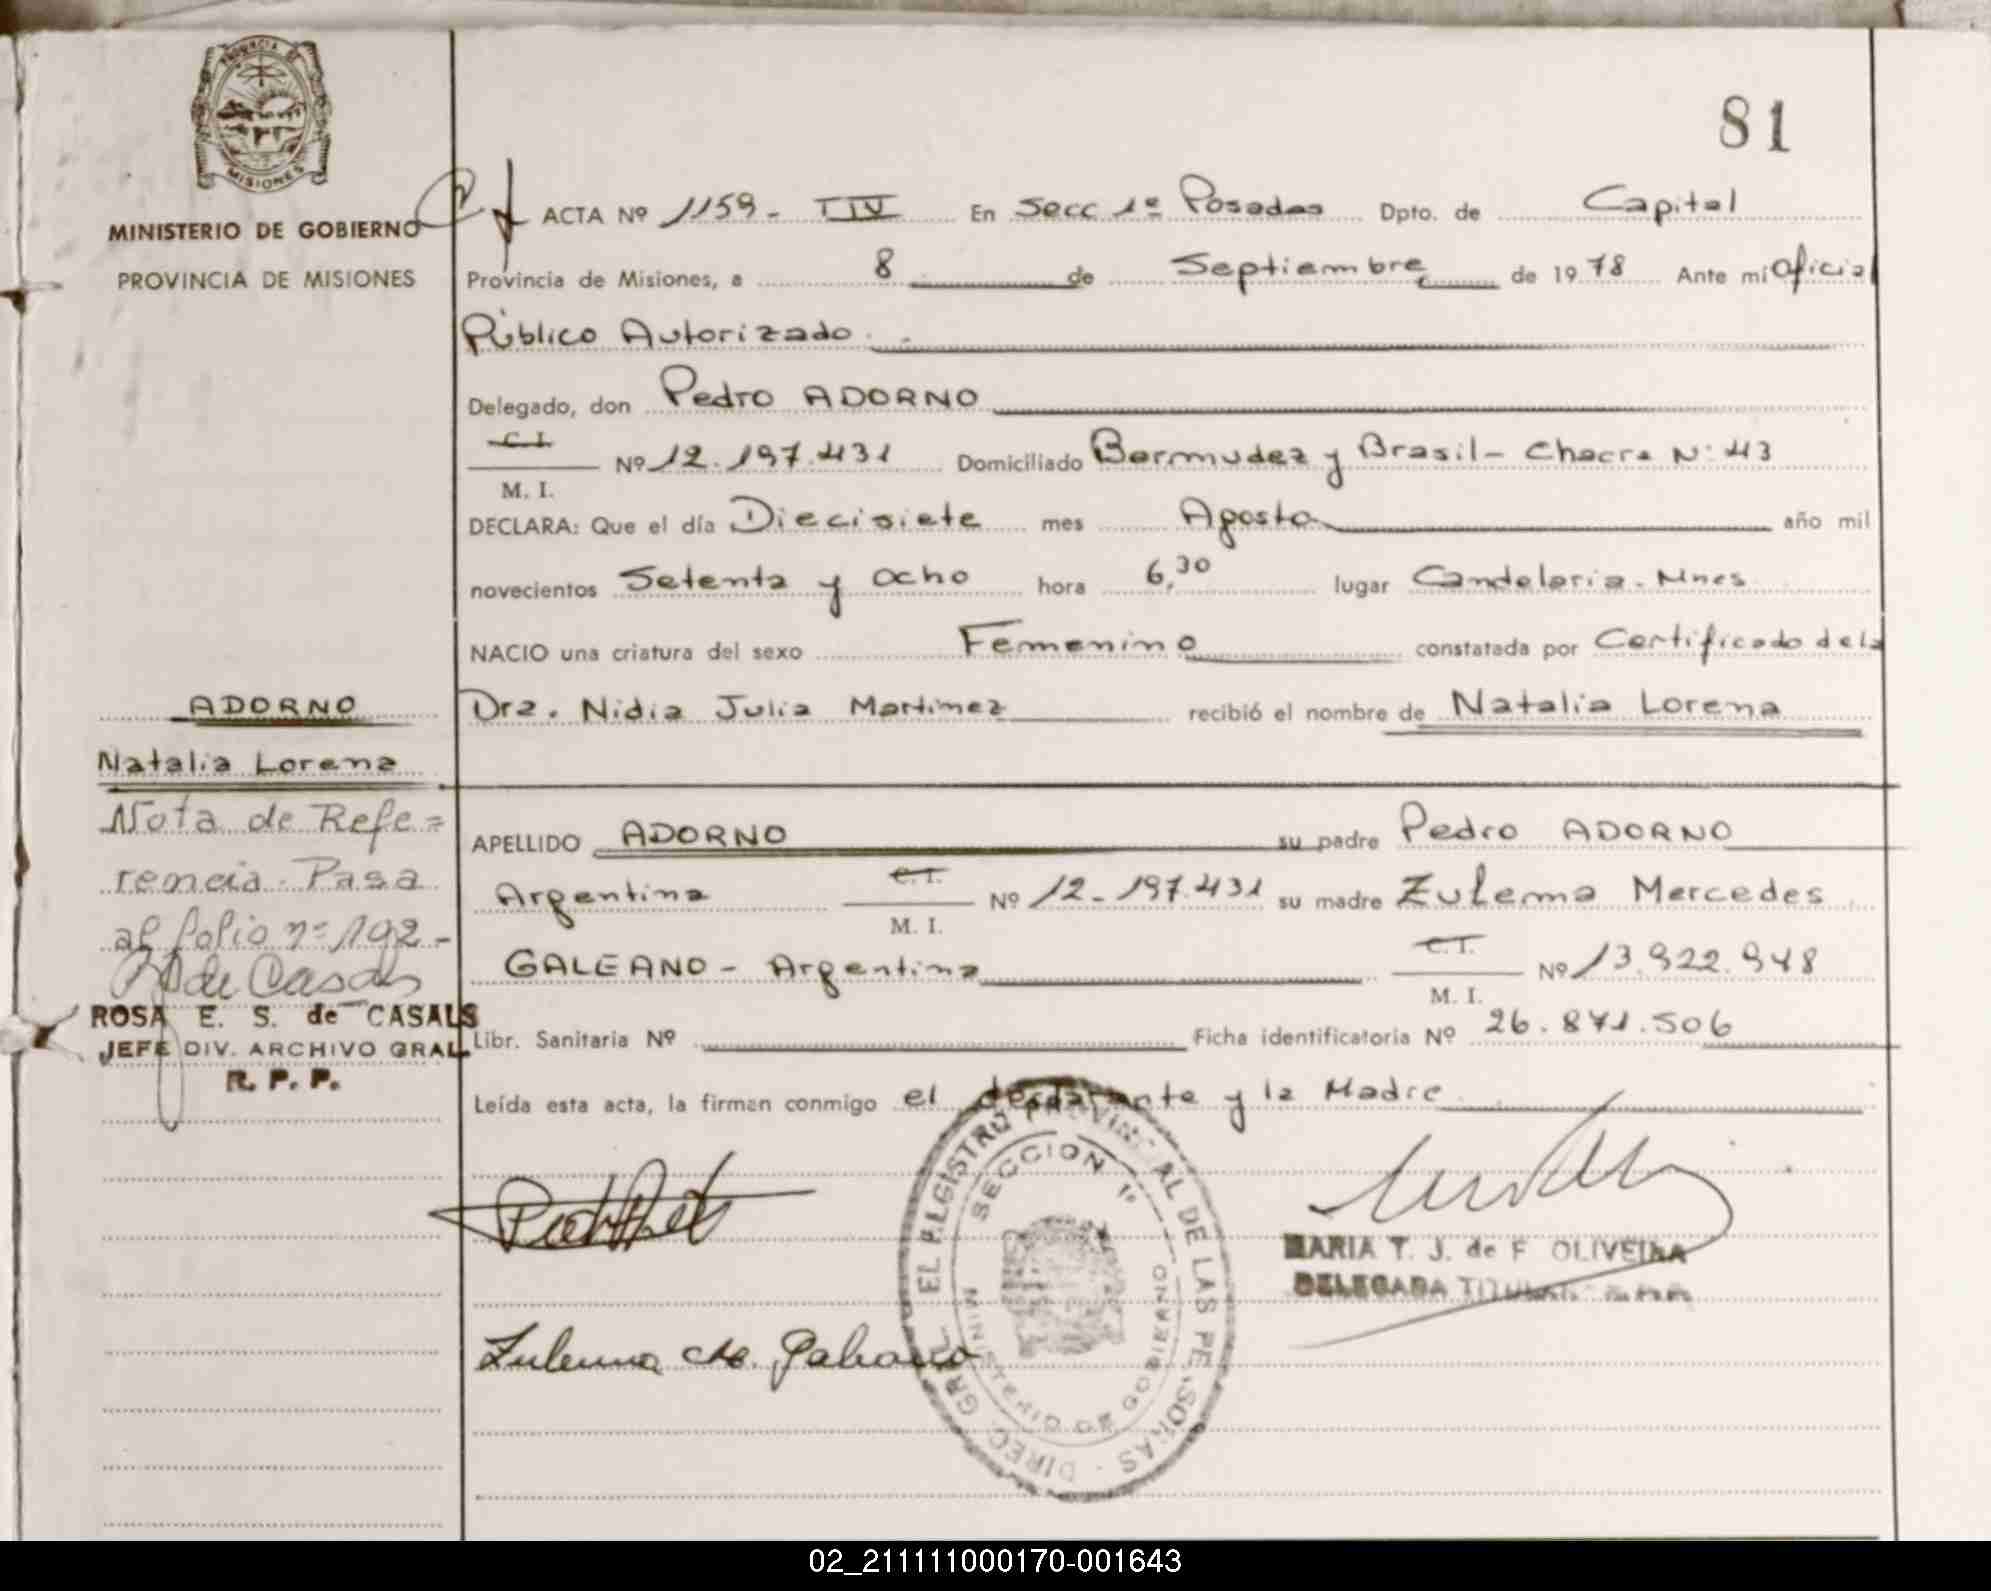 PROVINCIA DE
MISIONES
MINISTERIO DE GOBIERNO
PROVINCIA DE MISIONES
81
ACTA Nº 1159 - T IV En Secc 1º Posadas Dpto. de Capital
Provincia de Misiones, a 8 de Septiembre de 1978 Ante mi Oficial
Público Autorizado.
Delegado, don Pedro ADORNO
C. I.
Nº 12.197.431 Domiciliado Bermudez y Brasil - Chacra Nº 43
M. I.
DECLARA: Que el día Diecisiete mes Agosto año mil
novecientos Setenta y ocho hora 6,30 lugar Candelaria. Mnes
NACIO una criatura del sexo Femenino constatada por Certificado dela
Dra. Nidia Julia Martinez recibió el nombre de Natalia Lorena
ADORNO
Natalia Lorena
Nota de Refe=
rencia. Pasa
al folio nº 192 -
R S de Casals
ROSA E. S. de CASALS
JEFE DIV. ARCHIVO GRAL.
R. P. P.
APELLIDO ADORNO su padre Pedro ADORNO
Argentina C.I. Nº 12-197.431 su madre Zulema Mercedes
M. I.
GALEANO - Argentina C.I. Nº 13.922.948
M. I.
Libr. Sanitaria Nº Ficha identificatoria Nº 26.871.506
Leída esta acta, la firman conmigo el declarante y la Madre
DIREC. GRAL. DEL REGISTRO PROVINCIAL DE LAS PERSONAS
SECCION 1º
MINISTERIO DE GOBIERNO
MARIA T. J. de F OLIVEIRA
DELEGADA TITULAR
Zulema M. Galeano
02_211111000170-001643